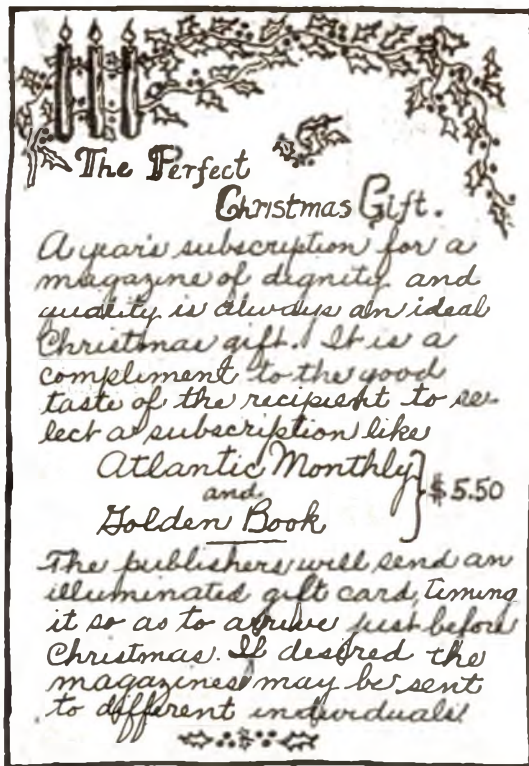 The Perfect
Christmas Gift.
A year's subscription for a
magazine of dignity and
quality is always an ideal
Christmas gift. It is a
compliment to the good
taste of the recipient to se-
lect a subscription like
Atlantic Monthly
and
Golden Book
$5.50
The publishers will send an
illuminated gift card, timing
it so as to arrive just before
Christmas. If desired the
magazines may be sent
to different individuals.